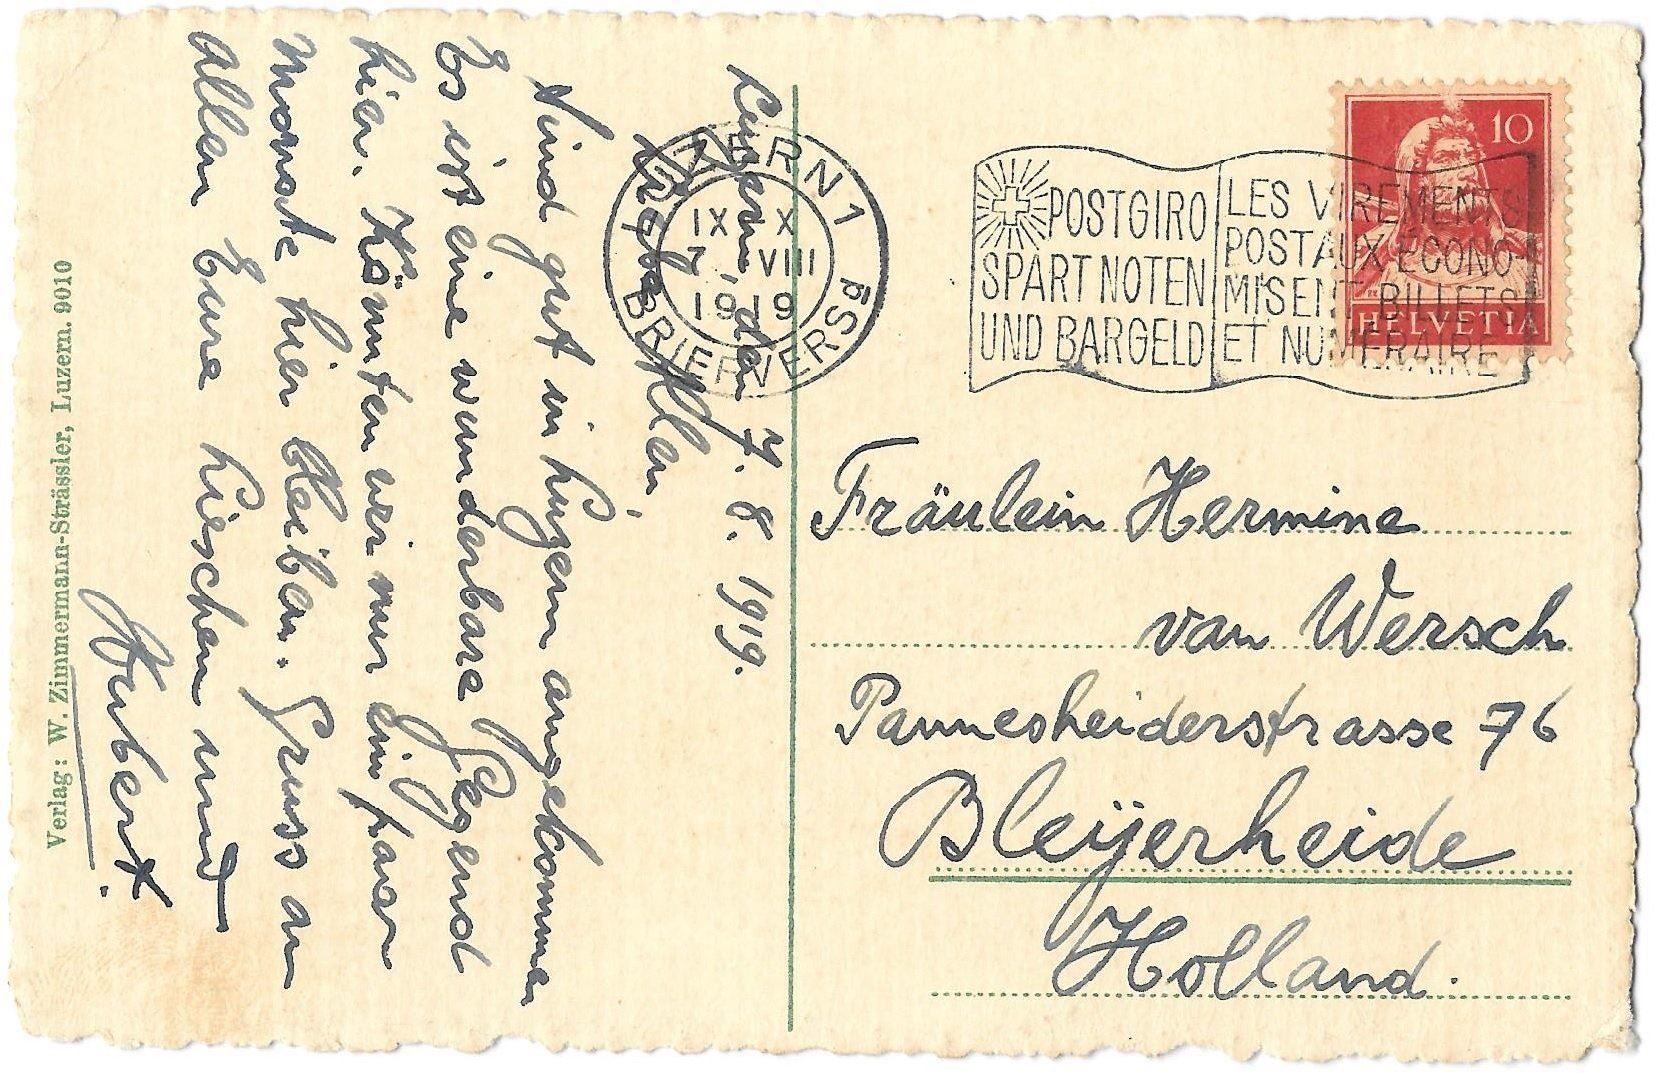 Luzern, den 7. 8. 1919.
Liebe Allen,
Sind gut in Luzern angekommen
Es ist eine wunderbare Gegend
hier. Könnten wir nur ein paar
Monate hier bleiben. Gruss an
Allen Eure Lieschen und
Hubert.
Verlag: W. Zimmermann-Strässler, Luzern. 9010
LUZERN 1
IX X
7. VIII
1919
BRIEFVERSD
POSTGIRO
SPART NOTEN
UND BARGELD
LES VIREMENTS
POSTAUX ÉCONO-
MISENT BILLETS
ET NUMÉRAIRE
10
HELVETIA
Fräulein Hermine
van Wersch
Pannesheiderstrasse 76
Bleijerheide
Holland.